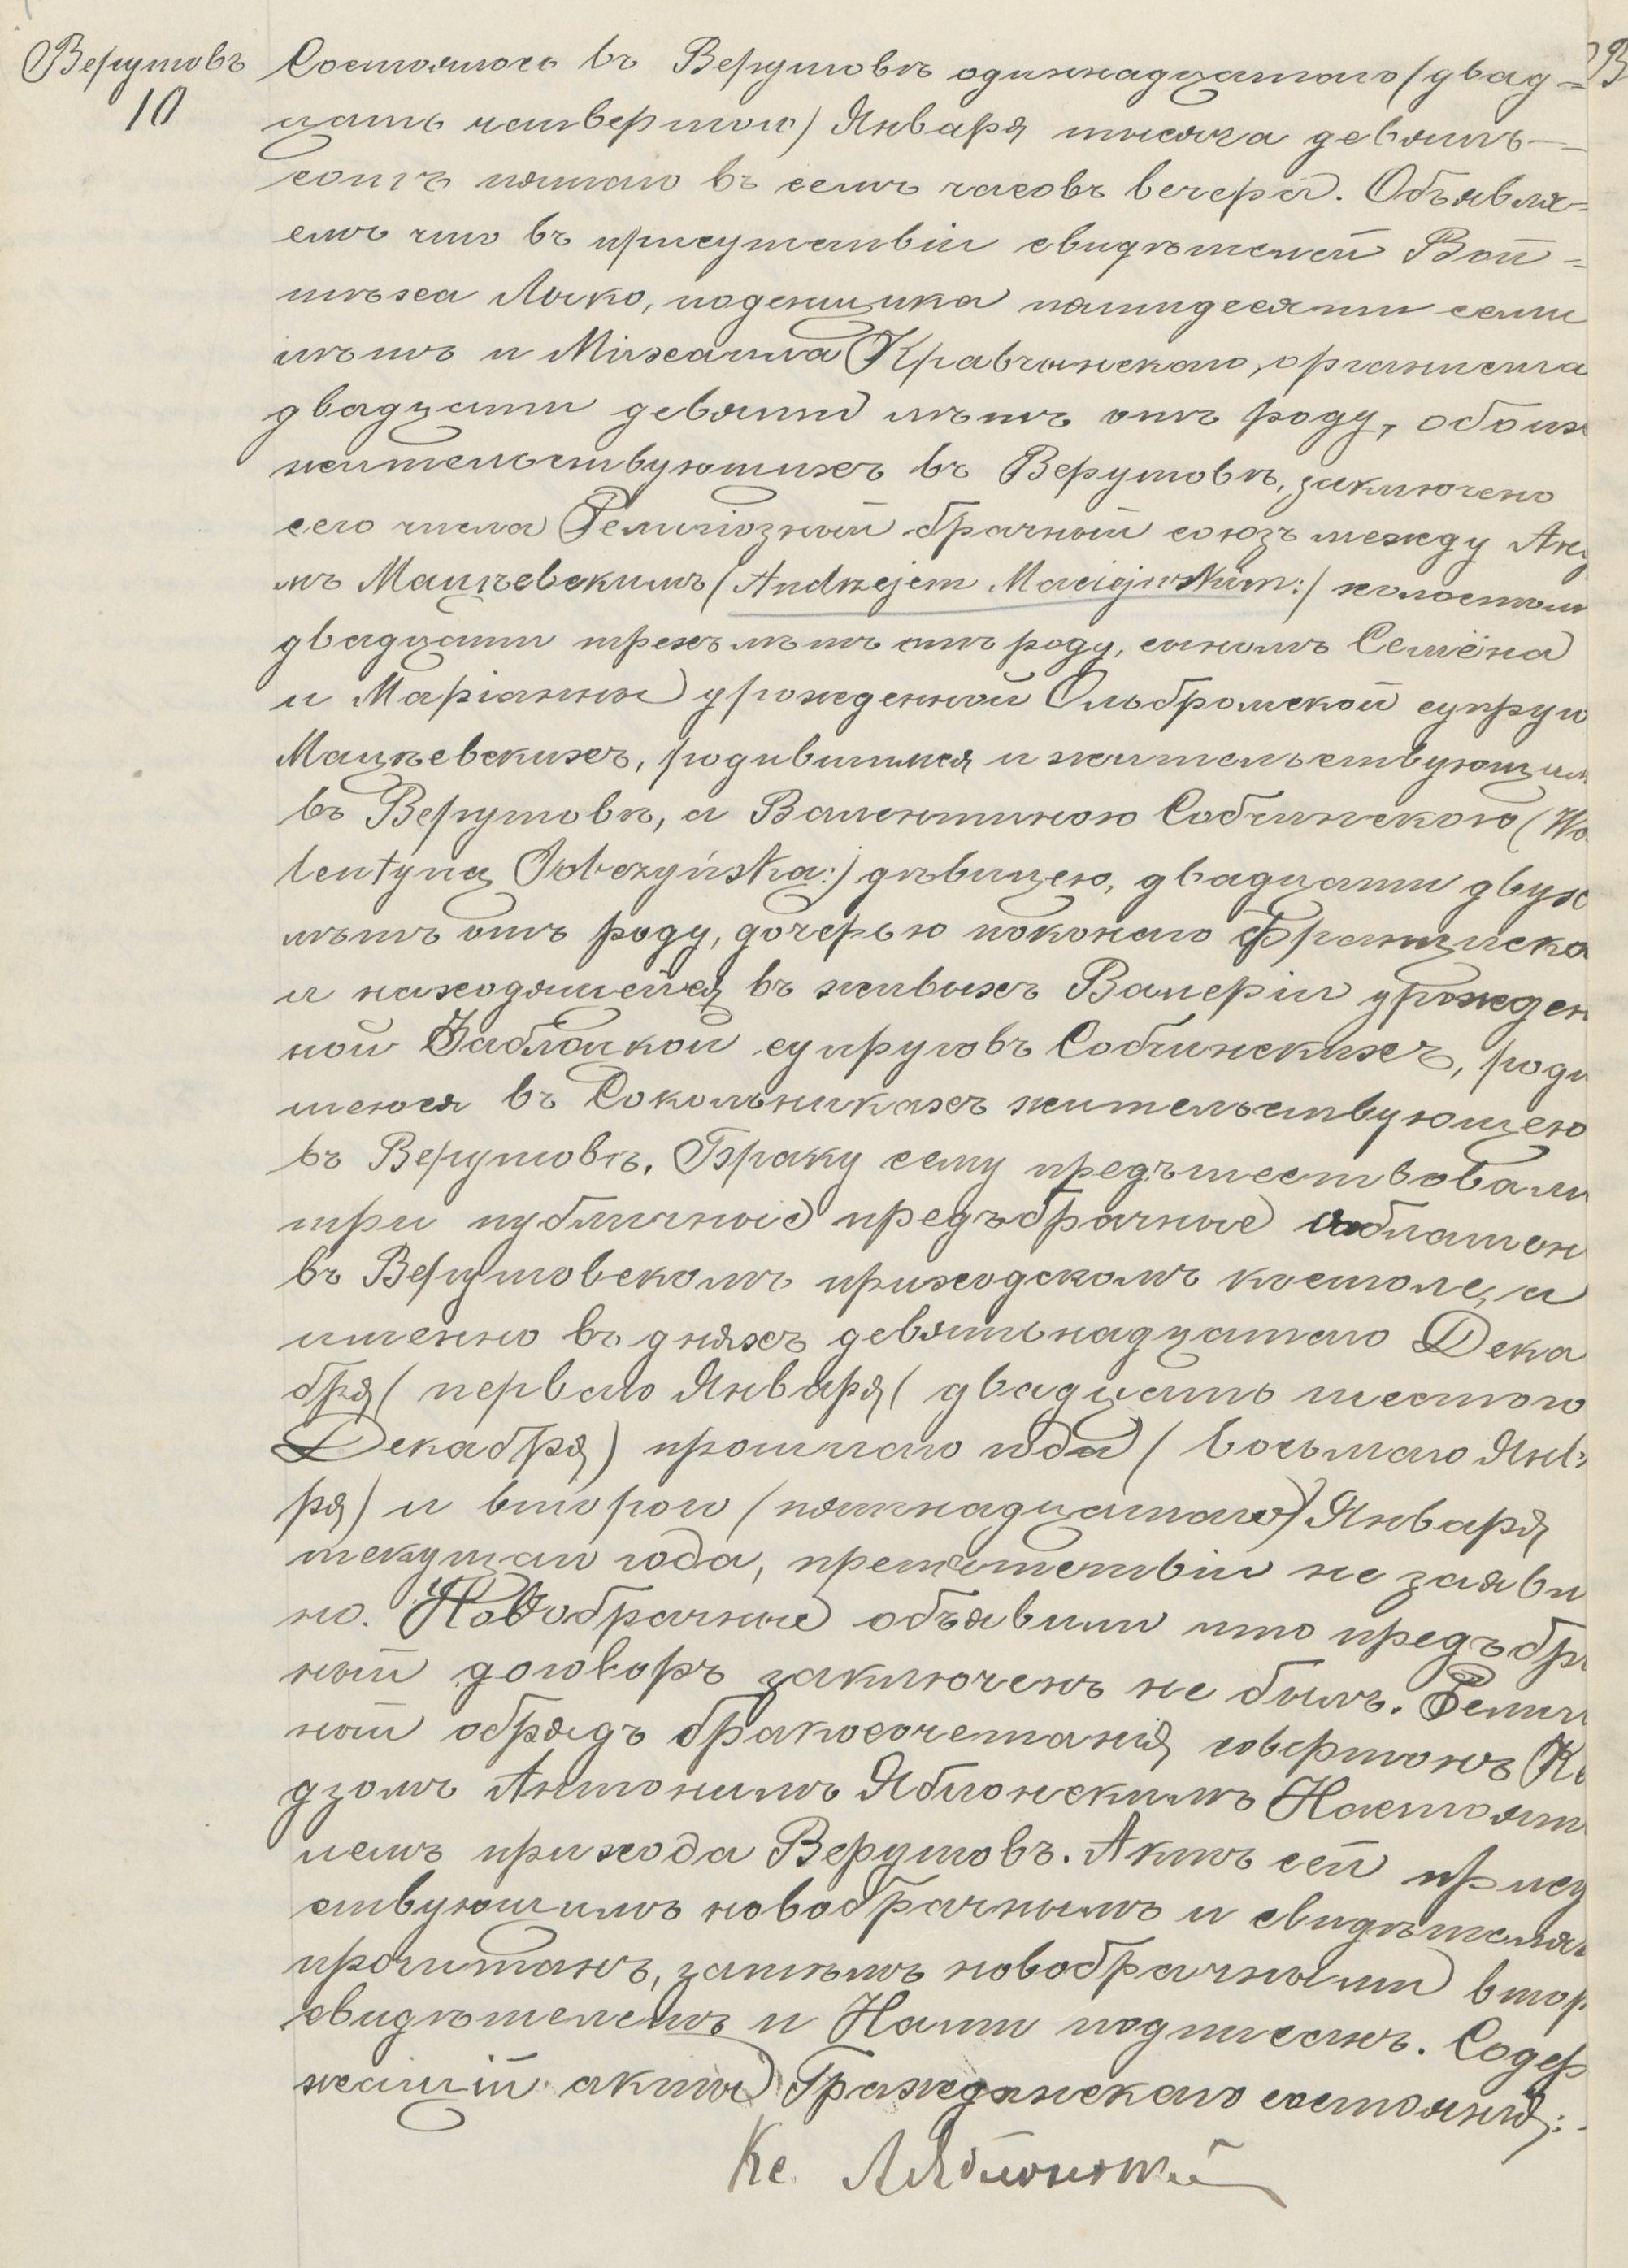 Верушовъ
10
Состоялось въ Верушовѣ одиннадцатаго (двад=
цать четвертого) Января тысяча девять-
сотъ пятаго въ семъ часовъ вечера. Объявля=
емъ что въ присутствіи свидѣтелей Вой=
тѣха Лочко, поденщика пятидесяти семи
лѣтъ и Михаила Кравчинскаго, органиста
двадцати девяти лѣтъ отъ роду, обоих
жительствующихъ въ Верушовѣ, заключено
сего числа Религіозный брачный союзъ между Анд
мъ Мацѣевскимъ (Andrzejem Maciejewskim:) холостым
двадцати трехъ лѣтъ отъ роду, сыномъ Семёна
и Маріанны урожденной Ольбромской супруго
Мацѣевскихъ, родившимся и жительствующим
въ Верушовѣ, а Валентиною Собчинскою (Wa
lentyną Sobczyńską:) дѣвицею, двадцати двух
лѣтъ отъ роду, дочерью покойнаго Францишка
и находящейся въ живыхъ Валеріи урожден
ной Заблоцкой супруговъ Собчинскихъ, роди
шеюся въ Сокольникахъ жительствующею
въ Верушовѣ. Браку сему предъшествовали
три публичные предъбрачные облашен
въ Верушовскомъ приходскомъ костоле, а
именно въ дняхъ девятьнадцатаго Дека
бря (перваго Января (двадцать шестого
Декабря) прошлаго года (восьмаго Янв
ря) и второго (пятнадцатаго) Января
текущаго года, препятствіи не заяви
но. Новобрачные объявили что предъбра
ный договоръ заключенъ не былъ. Религ
ный обрядъ бракосочетанія совершонъ Кс
дзомъ Антонимъ Яблонскимъ Настоят
лемъ прихода Верушовъ. Актъ сей прису
ствующимъ новобрачнымъ и свидѣтеля
прочитанъ, затѣмъ новобрачными втор
свидѣтелемъ и Нами подписанъ. Содер
жащій акты Гражданскаго состоянія:
Кс. А Яблонскій